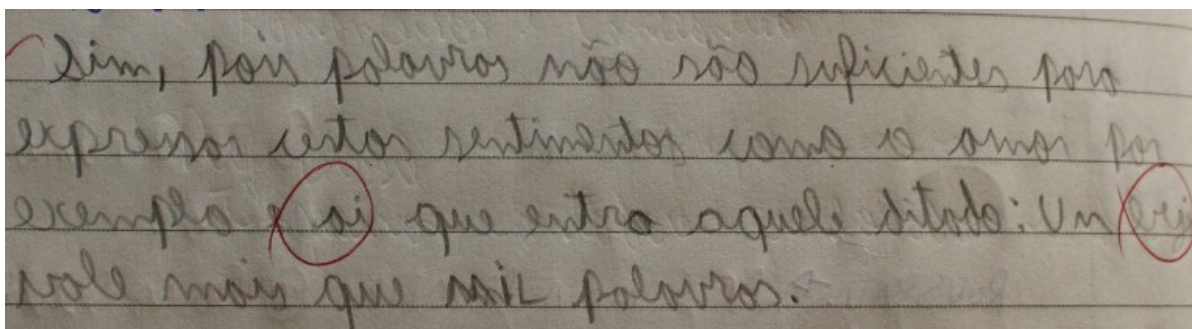 Sim, pois palavras não são suficientes para
expressar certos sentimentos como o amor por
exemplo ai que entra aquele ditado: Um
vale mais que mil palavras.